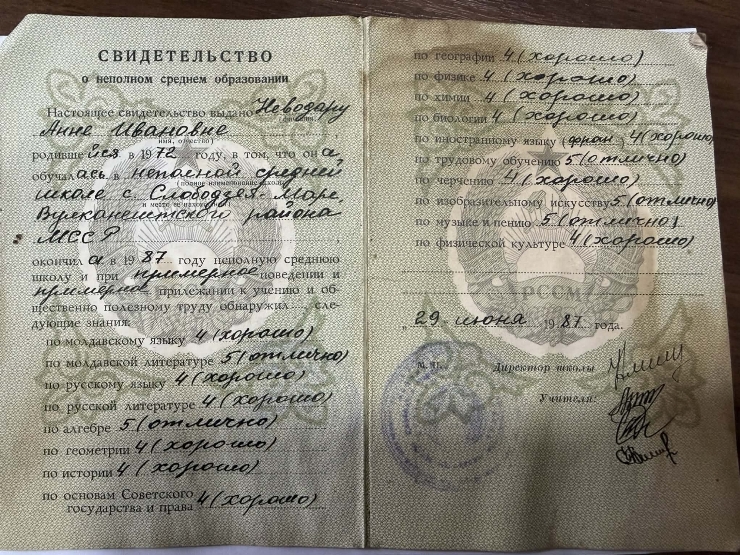 СВИДЕТЕЛЬСТВО
о неполном среднем образовании
Настоящее свидетельство выдано Неводару
(фамилия,
Анне Ивановне
имя, отчество)
родившейся в 1972 году, в том, что она
обучалась в неполной средней
(полное наименование школы
школе с. Слободзея-Маре,
и место ее нахождения)
Вулканештского района
МССР
окончила в 1987 году неполную среднюю
школу и при примерное поведении и
примерное прилежании к учению и об-
щественно полезному труду обнаружил сле-
дующие знания:
по молдавскому языку 4 (хорошо)
по молдавской литературе 5 (отлично)
по русскому языку 4 (хорошо)
по русской литературе 4 (хорошо)
по алгебре 5 (отлично)
по геометрии 4 (хорошо)
по истории 4 (хорошо)
по основам Советского
государства и права 4 (хорошо)
по географии 4 (хорошо)
по физике 4 (хорошо)
по химии 4 (хорошо)
по биологии 4 (хорошо)
по иностранному языку (фран.) 4 (хорошо)
по трудовому обучению 5 (отлично)
по черчению 4 (хорошо)
по изобразительному искусству 5 (отлично)
по музыке и пению 5 (отлично)
по физической культуре 4 (хорошо)
РССМ
„29" июня 1987 года.
М. П. Директор школы
Учителя: